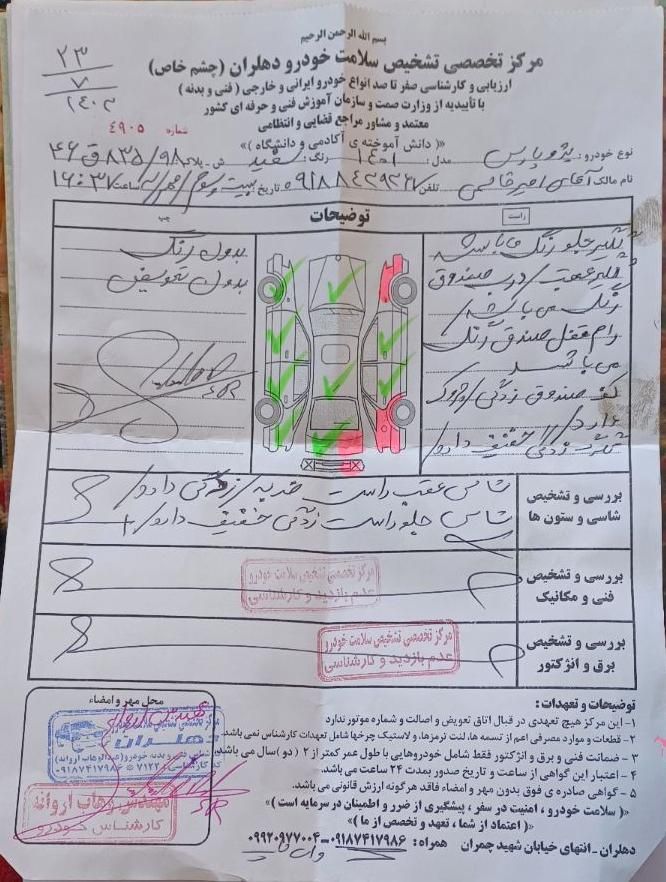 بسم الله الرحمن الرحیم
مرکز تخصصی تشخیص سلامت خودرو دهلران (چشم خاص)
ارزیابی و کارشناسی صفر تا صد انواع خودرو ایرانی و خارجی (فنی و بدنه)
با تأییدیه از وزارت صمت و سازمان آموزش فنی و حرفه ای کشور
معتمد و مشاور مراجع قضایی و انتظامی
«( دانش آموخته ی آکادمی و دانشگاه )»
۲۳
۷
۱۴۰۳
شماره ۴۹۰۵
نوع خودرو: پژو پارس مدل: ۱۴۰۱ رنگ: سفید ش - پلاک: ۹۸/ ۸۳۵ ق ۴۶
نام مالک: آقای امیر قاسمی تلفن: تاریخ: بیست و سوم / مهر ماه ساعت: ۱۶:۳۷
راست
توضیحات
چپ
گلگیر جلو رنگ می باشد
گلگیر عقب / درب صندوق
رنگ می باشد /
رام قفل صندوق رنگ
می باشد
کف صندوق زدگی /
دارد /
زدگی خفیف دارد /
بدون رنگ
بدون تعویض
بررسی و تشخیص شاسی و ستون ها
شاسی عقب راست ضربه / زدگی دارد /
شاسی جلو راست زدگی خفیف دارد /
بررسی و تشخیص فنی و مکانیک
مرکز تخصصی تشخیص سلامت خودرو
عدم بازدید و کارشناسی
بررسی و تشخیص برق و انژکتور
مرکز تخصصی تشخیص سلامت خودرو
عدم بازدید و کارشناسی
توضیحات و تعهدات:
۱- این مرکز هیچ تعهدی در قبال اتاق تعویض و اصالت و شماره موتور ندارد
۲- قطعات و موارد مصرفی اعم از تسمه ها، لنت ترمزها، و لاستیک چرخها شامل تعهدات کارشناس نمی باشد.
۳- ضمانت فنی و برق و انژکتور فقط شامل خودروهایی با طول عمر کمتر از ۲ ( دو )سال می باشد.
۴- اعتبار این گواهی از ساعت و تاریخ صدور بمدت ۲۴ ساعت می باشد.
۵- گواهی صادره ی فوق بدون مهر و امضاء فاقد هرگونه ارزش قانونی می باشد.
«( سلامت خودرو ، امنیت در سفر ، پیشگیری از ضرر و اطمینان در سرمایه است )»
«( اعتماد از شما ، تعهد و تخصص از ما )»
محل مهر و امضاء
دهلران
مهندس وهاب اروانه
کارشناس خودرو
دهلران - انتهای خیابان شهید چمران همراه: ۰۹۱۸۷۴۱۷۹۸۶-۰۹۹۲۰۹۷۷۰۰۴
واتساپ